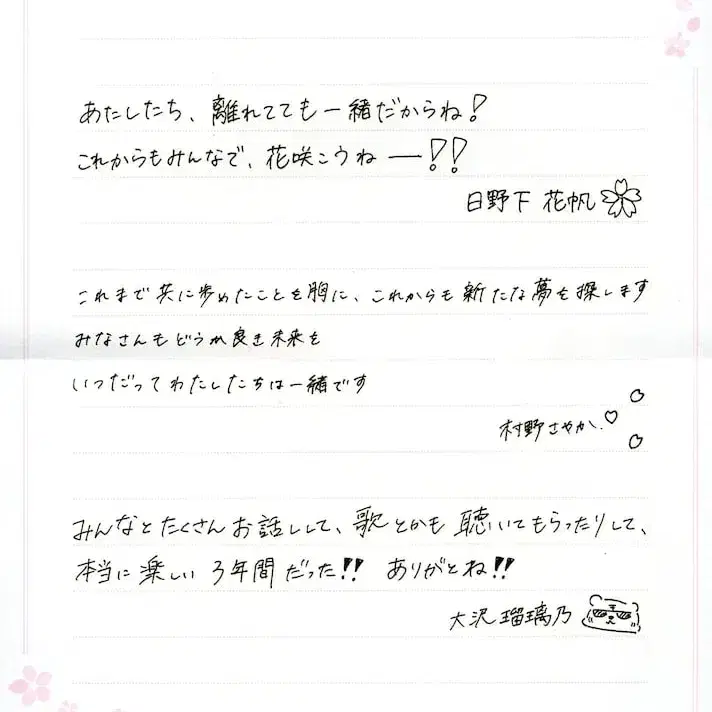 あたしたち、離れてても一緒だからね!
これからもみんなで、花咲こうねー!!
日野下 花帆
これまで共に歩めたことを胸に、これからも新たな夢を探します
みなさんもどうか良き未来を
いつだってわたしたちは一緒です
村野さやか.
みんなとたくさんお話しして、歌とかも聴いてもらったりして、
本当に楽しい3年間だった!! ありがとね!!
大沢瑠璃乃